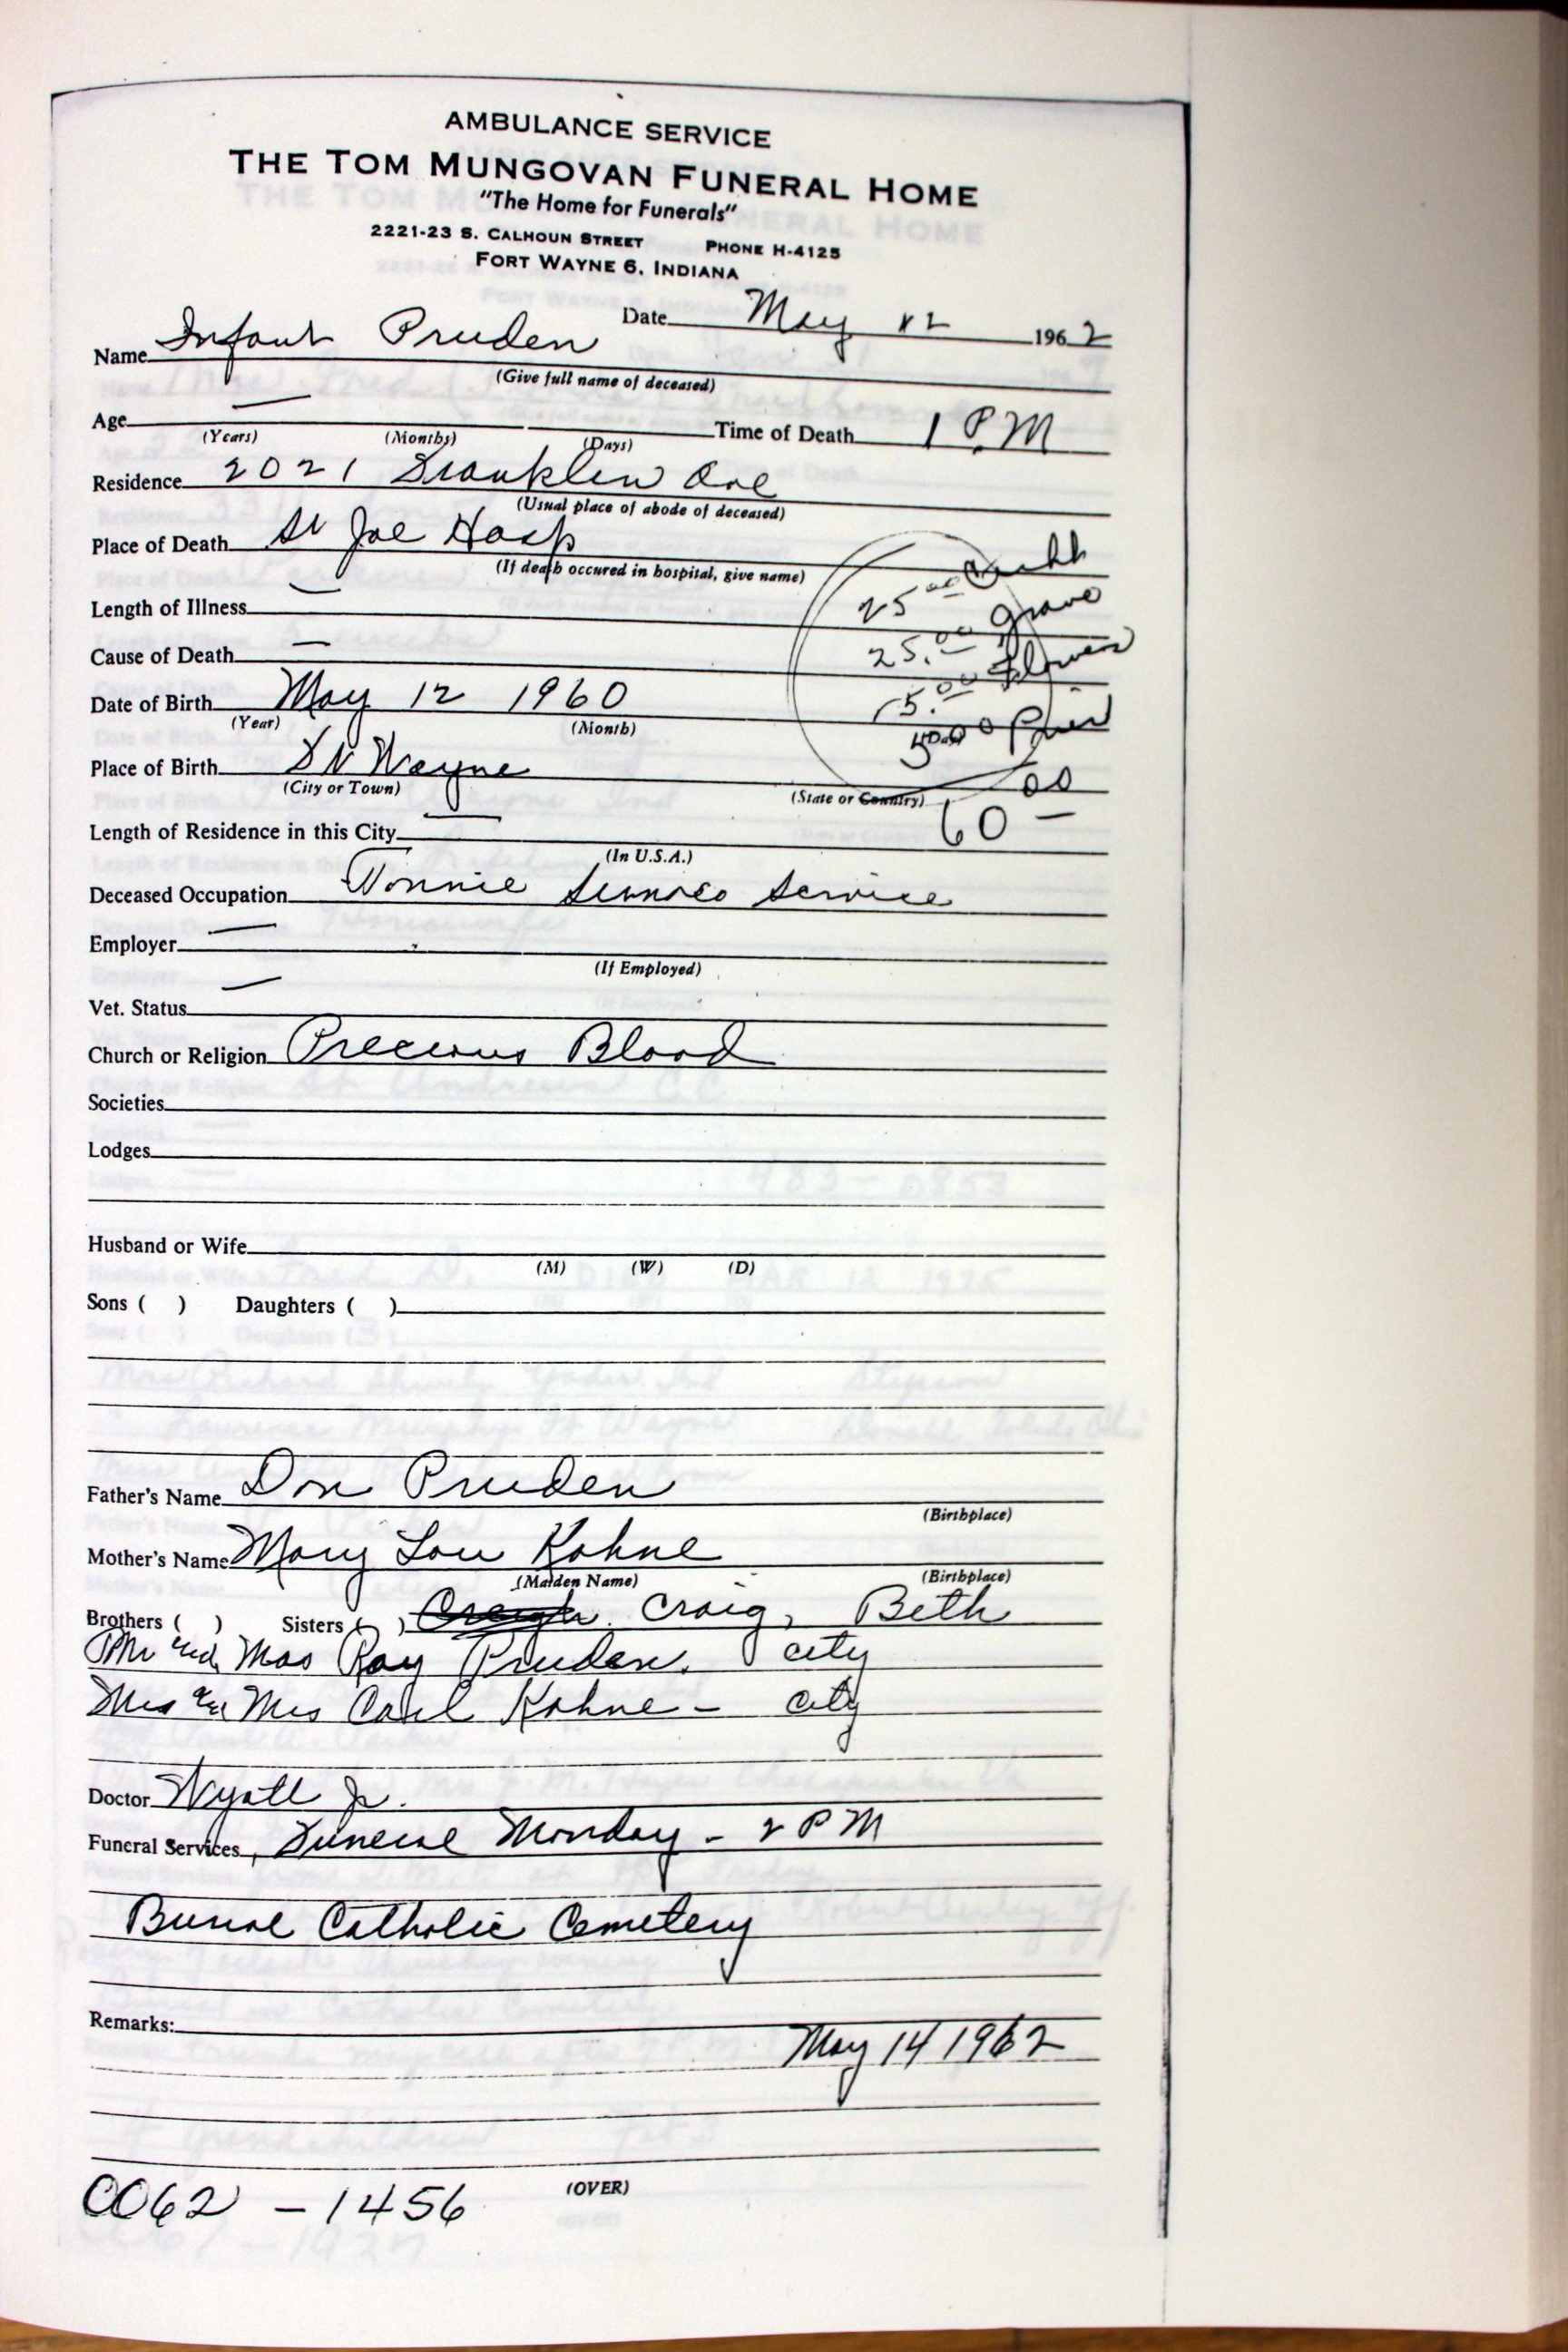 AMBULANCE SERVICE
THE TOM MUNGOVAN FUNERAL HOME
"The Home for Funerals"
2221-23 S. CALHOUN STREET PHONE H-4125
FORT WAYNE 6, INDIANA
Date May 12 1962
Name Infant Pruden
(Give full name of deceased)
Age — Time of Death 1 PM
(Years) (Months) (Days)
Residence 2021 Franklin Ave
(Usual place of abode of deceased)
Place of Death St Joe Hosp
(If death occured in hospital, give name)
25.00
Length of Illness —
25.00 Grave
Cause of Death —
15.00 Flower
Date of Birth May 12 1960
(Year) (Month) (Day)
Place of Birth Ft Wayne
(City or Town) (State or Country)
60 00
Length of Residence in this City —
(In U.S.A.)
Deceased Occupation Sunoco Service
Employer —
(If Employed)
Vet. Status —
Church or Religion Precious Blood
Societies
Lodges
Husband or Wife
(M) (W) (D)
Sons ( ) Daughters ( )
Father's Name Don Pruden
(Birthplace)
Mother's Name Mary Lou Kohne
(Maiden Name) (Birthplace)
Brothers ( ) Sisters ( ) Craig, Beth
Mr and Mrs Ray Pruden. city
Mrs and Mrs Carl Kohne – city
Doctor Wyatt Jr.
Funeral Services, Funeral Monday – 2 PM
Burial Catholic Cemetery
Remarks:
May 14 1962
(OVER)
CC62 – 1456